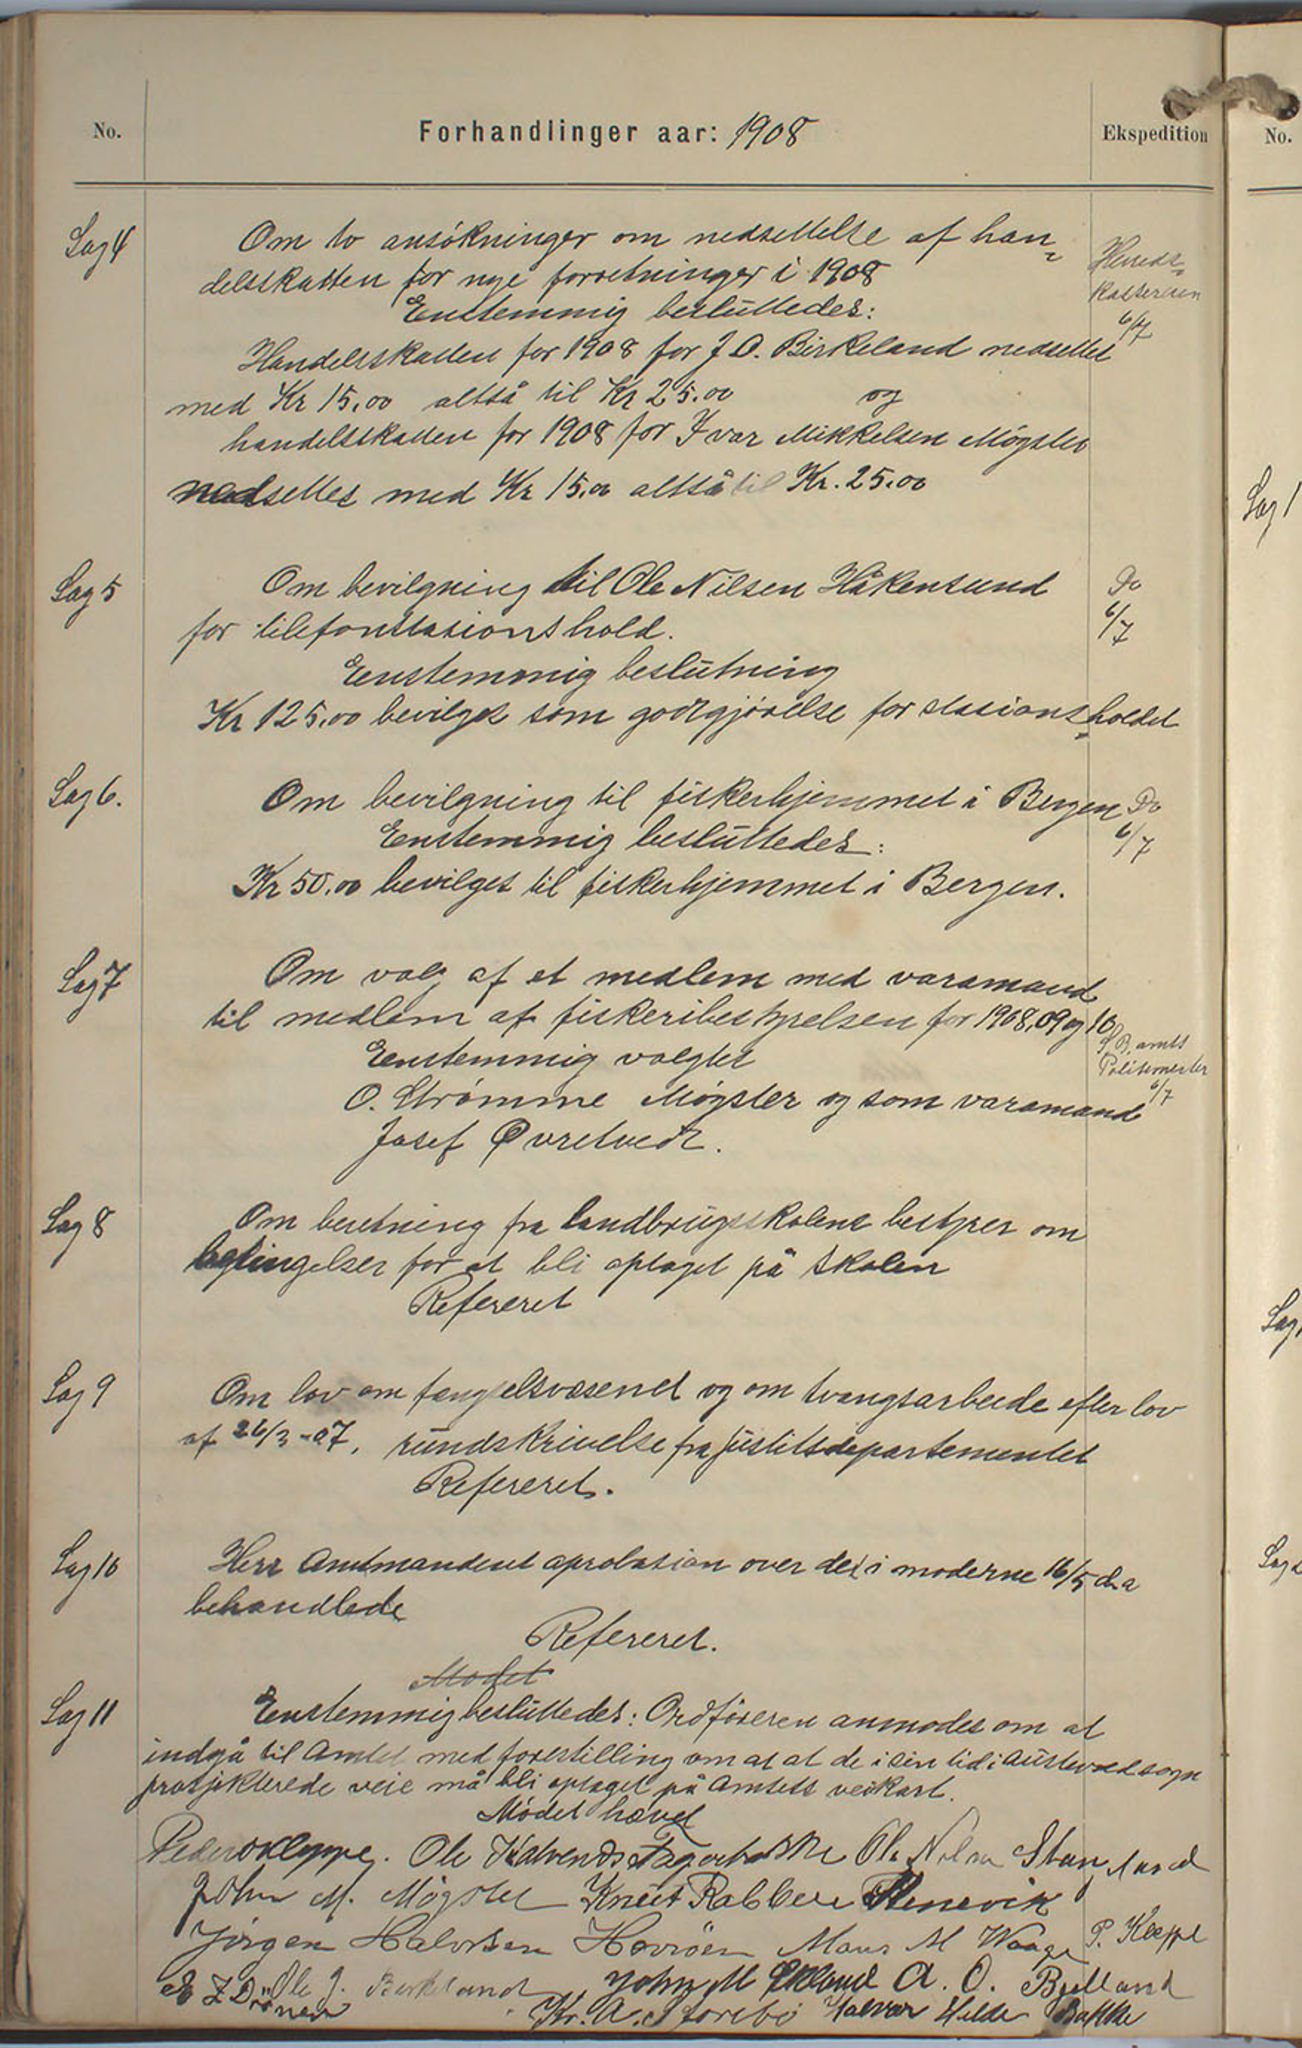 No.
Forhandlinger aar: 1908
Ekspedition
No.
Sag 4
Om to ansökninger om nedsettelse af han=
delsskatten for nye forretninger i 1908
Enstemmig besluttedes:
Handelsskatten for 1908 for J. O. Birkeland nedsettes
med Kr 15.00 altså til Kr 25.00 og
handelsskatten for 1908 for Ivar Mikkelsen Møgster
nedsettes med Kr 15.00 altså til Kr. 25.00
Hereds=
kasseren
6/7
Sag 5
Om bevilgning til Ole Nilsen Håkensund
for telefonstasionshold.
Enstemmig beslutning
Kr 125.00 bevilges som godtgjörelse for stasions=holdet
Do
6/7
Sag 6.
Om bevilgning til fiskerhjemmet i Bergen
Enstemmig besluttedes:
Kr 50.00 bevilges til fiskerhjemmet i Bergen.
Do
6/7
Sag 7
Om valg af et medlem med varamand
til medlem af fiskeribestyrelsen for 1908, 09 og 10
Enstemmig valgtes
O. Strømme Møgster og som varamand
Josef Øvretvedt.
S. B. amts
Politimester
6/7
Sag 8
Om beretning fra landbrugsskolens bestyrer om
betingelser for at bli optaget på skolen
Refereret
Sag 9
Om lov om fængselsvæsenet og om tvangsarbeide efter lov
af 26/3-07, rundskrivelse fra justitsdepartementet
Refereret.
Sag 10
Herr Amtmandens aprobasion over de i møderne 16/5 d.a
behandlede
Refereret.
Mødet
Sag 11
Enstemmig besluttedes: Ordføreren anmodes om at
indgå til Amtet med forestilling om at at de i sin tid i Austevoll sogn
prosjekterede veie må bli optaget på Amtets veikart.
Mødet hævet
Peder Kleppe. Ole Kalvenes Ole Nilsen
John M. Møgster Kneet Rabben Stenevik
Jörgen Halvorsen Havröen Mons M Waage P. Kleppe
Z Drönen Ole J. Birkeland John M Ekland A. O. Bjelland
Kr. A. Storebö Halvor Helde Bakke
Sag 1
Sag
Sag